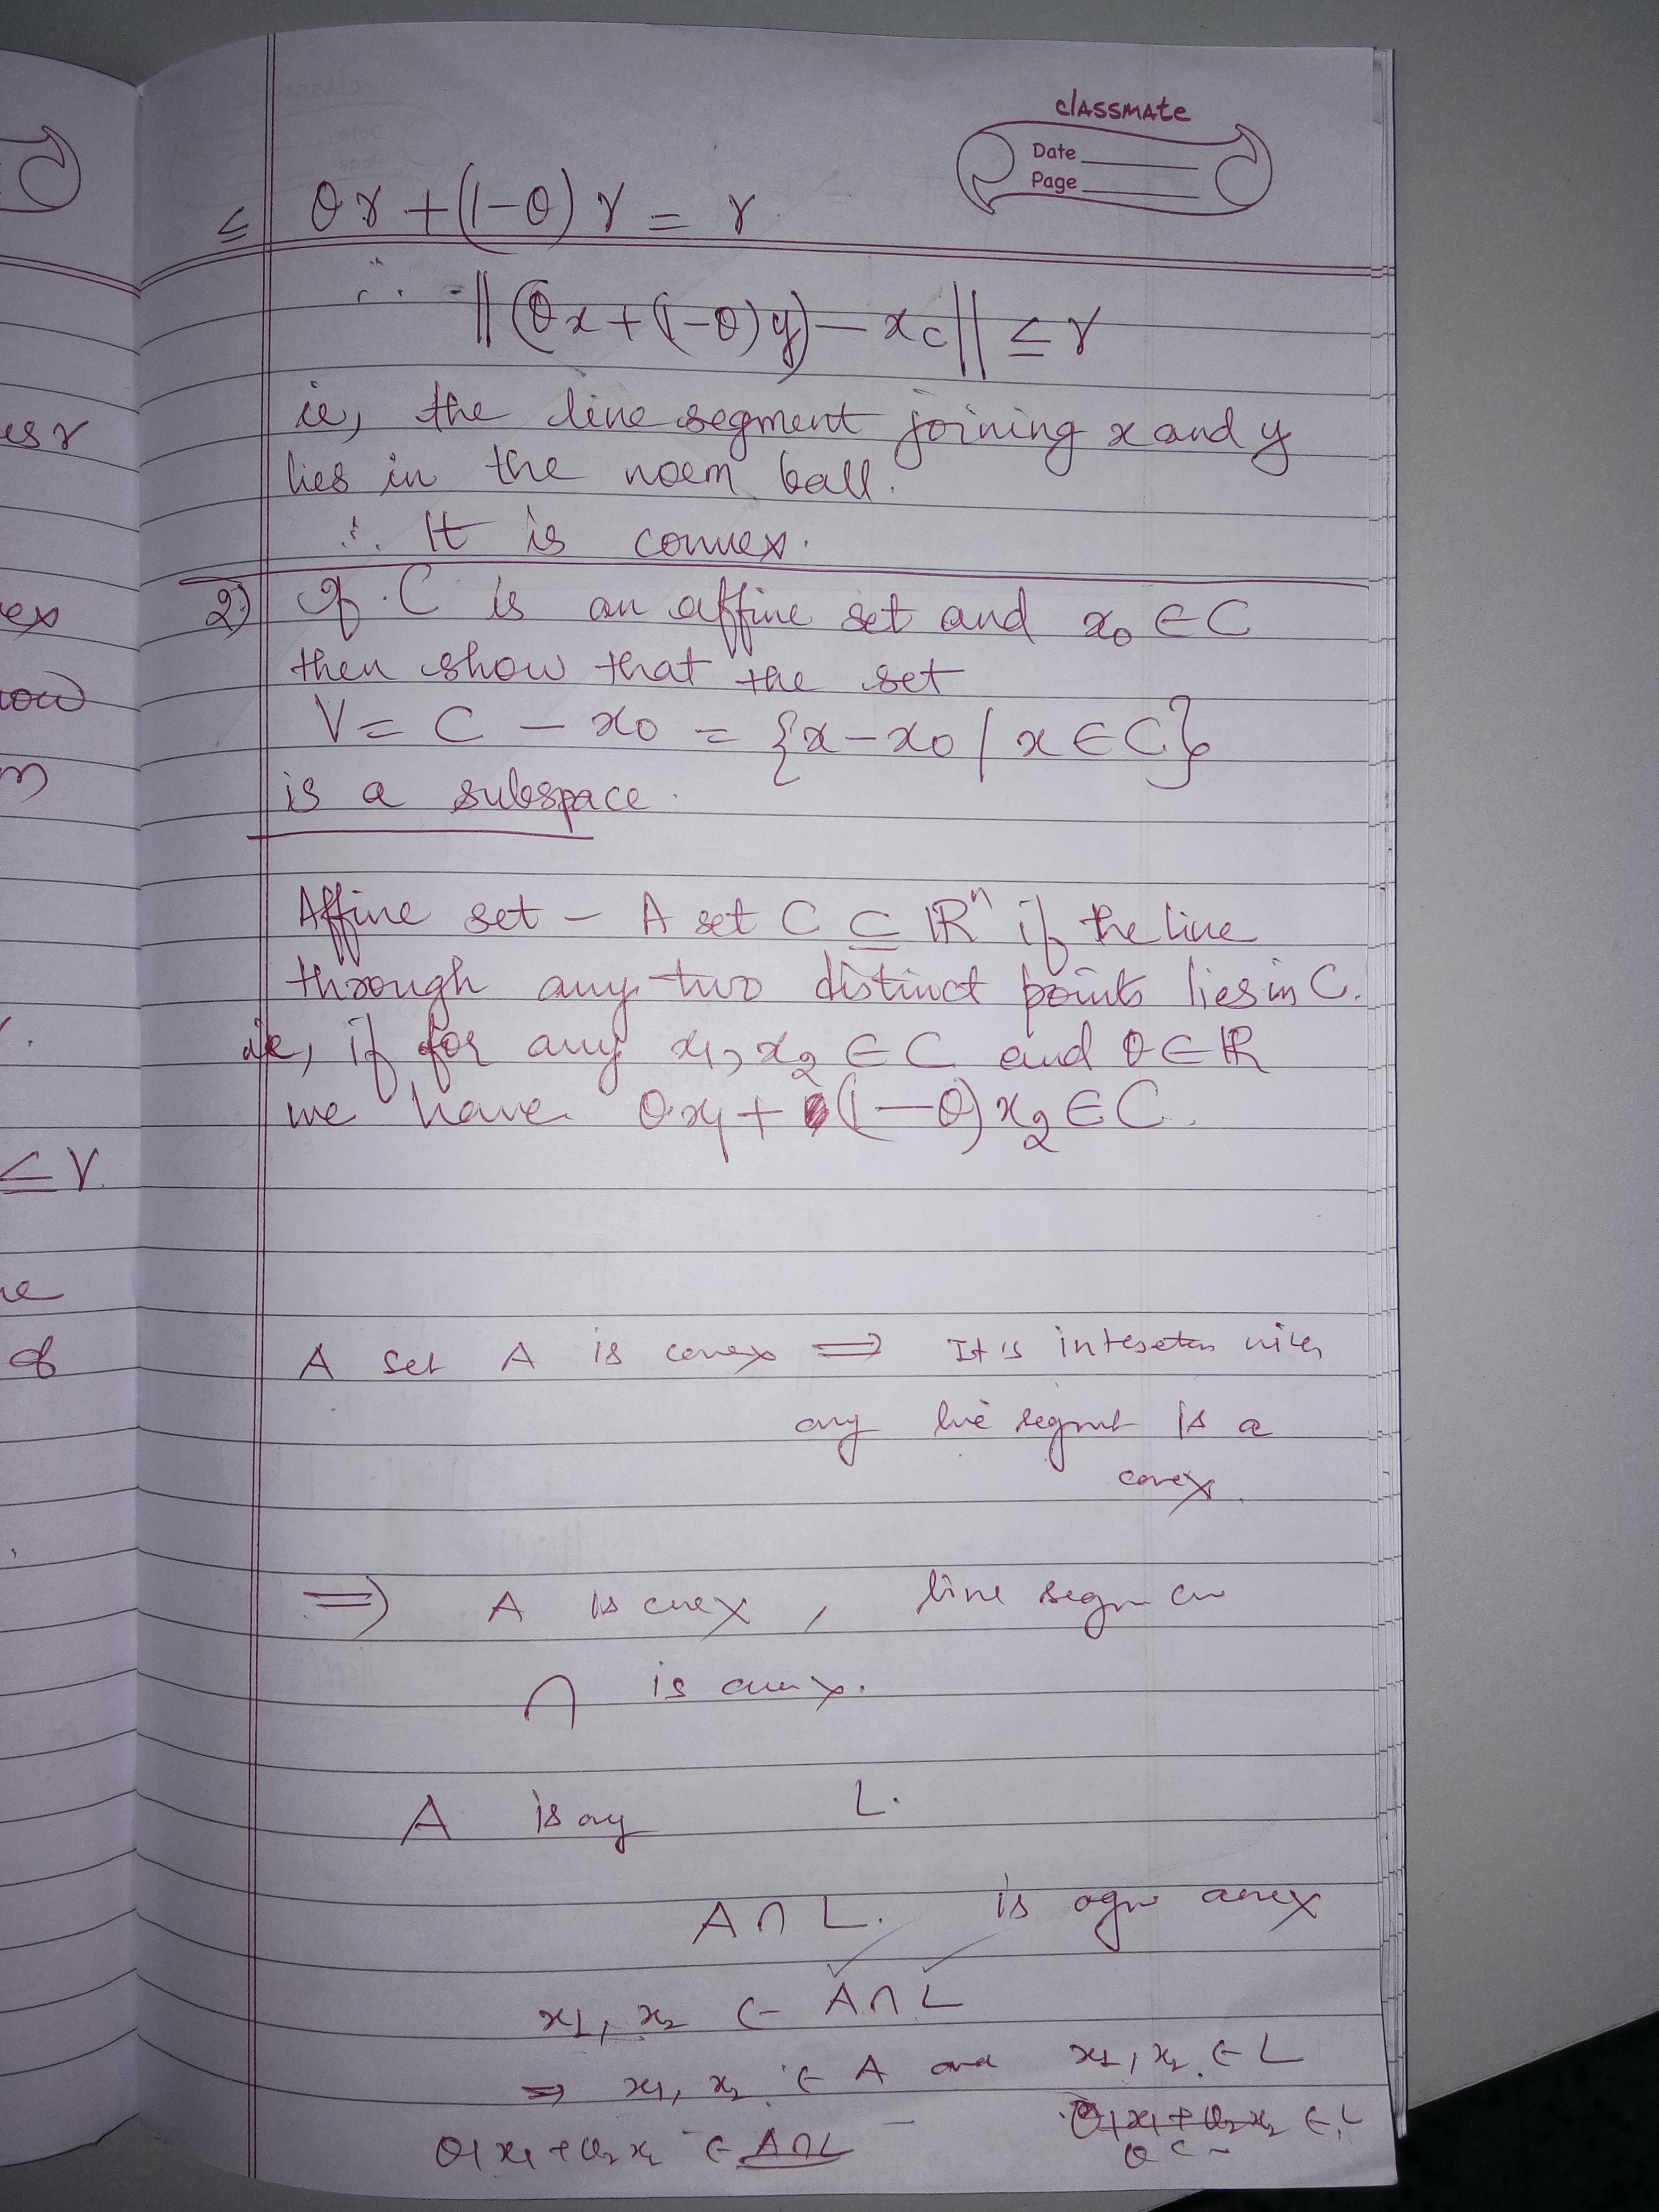 classmate
Date
Page
≤ θr + (1-θ) r = r
∴ ||(θx + (1-θ)y) - xc|| ≤ r
ie, the line segment joining x and y
lies in the norm ball.
∴ It is convex.
2) If C is an affine set and x₀ ∈ C
then show that the set
V = C - x₀ = {x - x₀ / x ∈ C}
is a subspace.
Affine set - A set C ⊆ ℝⁿ if the line
through any two distinct points lies in C.
ie, if for any x₁, x₂ ∈ C and θ ∈ ℝ
we have θx₁ + (1-θ)x₂ ∈ C.
A set A is convex ⇒ It is
any line segment is a
convex.
⇒ A is convex, line
∩ is convex.
A is any L.
A ∩ L. is convex
x₁, x₂ ∈ A ∩ L
⇒ x₁, x₂ ∈ A and x₁, x₂ ∈ L
θ₁x₁ + θ₂x₂ ∈ L
θ₁x₁ + θ₂x₂ ∈ A∩L
es r
ex
now
≤ r
of